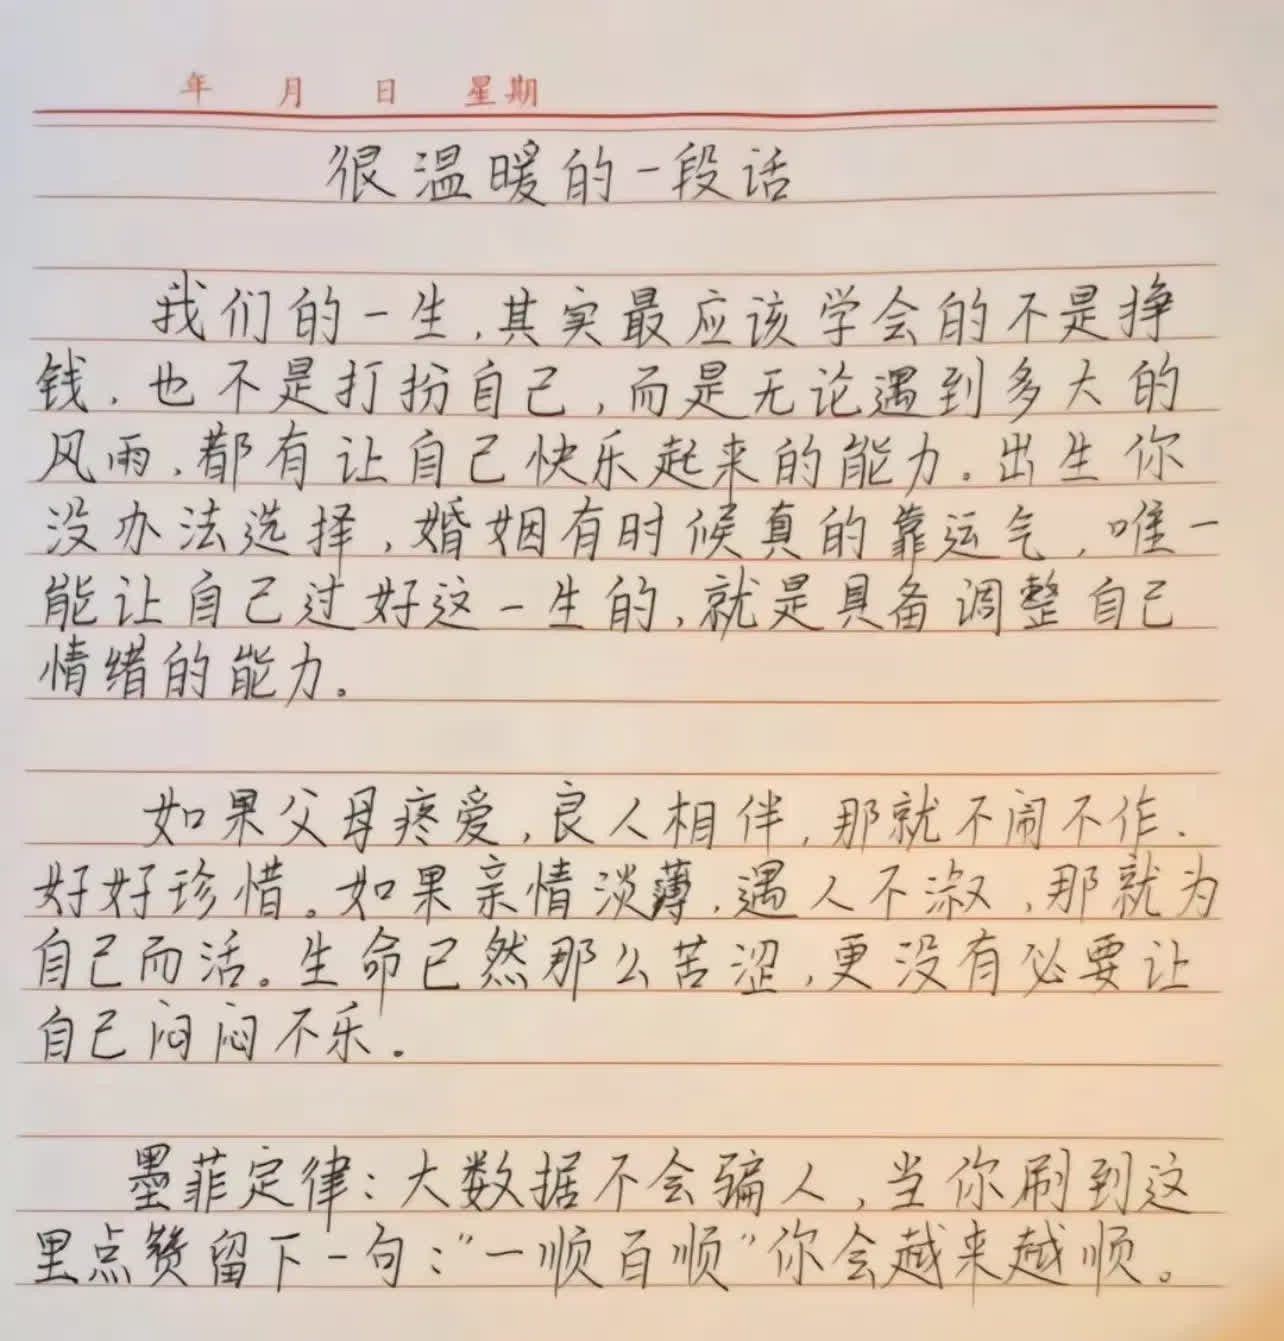 年 月 日 星期
很温暖的一段话
我们的一生,其实最应该学会的不是挣
钱,也不是打扮自己,而是无论遇到多大的
风雨,都有让自己快乐起来的能力。出生你
没办法选择,婚姻有时候真的靠运气,唯一
能让自己过好这一生的,就是具备调整自己
情绪的能力。
如果父母疼爱,良人相伴,那就不闹不作.
好好珍惜。如果亲情淡薄,遇人不淑,那就为
自己而活。生命已然那么苦涩,更没有必要让
自己闷闷不乐.
墨菲定律:大数据不会骗人,当你刷到这
里点赞留下一句:"一顺百顺"你会越来越顺。